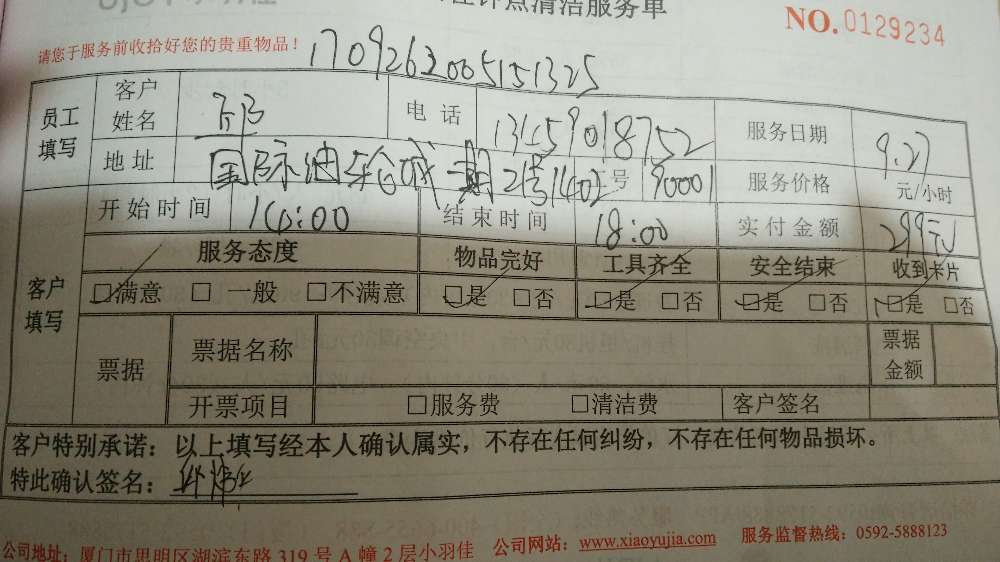 点清洁服务单
NO.0129234
请您于服务前收拾好您的贵重物品！
1709262005151325
员工填写 客户姓名 电话 服务日期 9.27
地址 国际油轮城一期2号1402 号 90001 服务价格 元/小时
开始时间 14:00 结束时间 18:00 实付金额 299元
客户填写 服务态度 物品完好 工具齐全 安全结束 收到卡片
□满意 □一般 □不满意 □是 □否 □是 □否 □是 □否 □是 □否
票据 票据名称 票据金额
开票项目 □服务费 □清洁费 客户签名
客户特别承诺：以上填写经本人确认属实，不存在任何纠纷，不存在任何物品损坏。
特此确认签名：
公司地址：厦门市思明区湖滨东路 319 号 A 幢 2 层小羽佳 公司网站：www.xiaoyujia.com 服务监督热线：0592-5888123